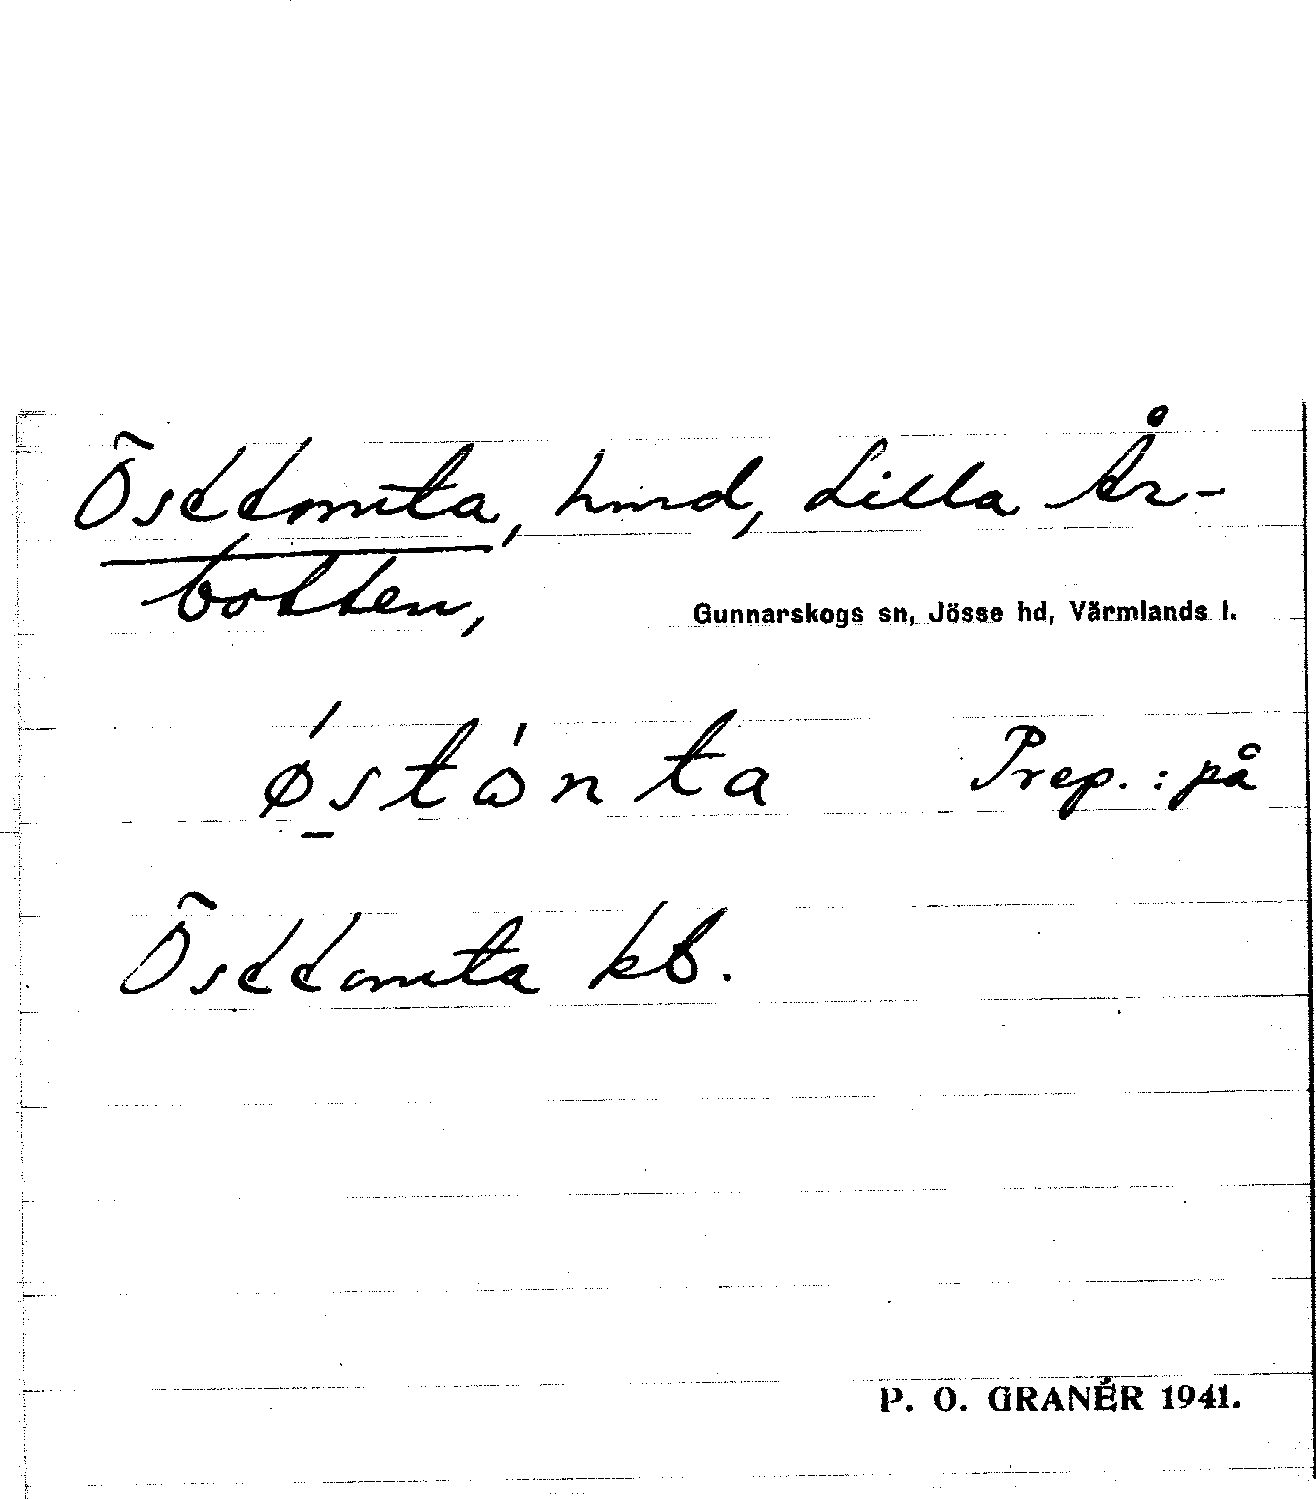 Östtomta, hmd, Lilla År-
botten,
Gunnarskogs sn, Jösse hd, Värmlands l.
ǿs̱tɷ̍nta Prep.: på
Östtomta kb.
P. O. GRANÉR 1941.